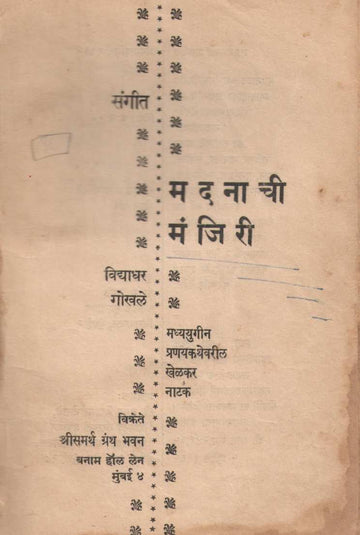 संगीत
मदनाची
मंजिरी
विद्याधर
गोखले
मध्ययुगीन
प्रणयकथेवरील
खेळकर
नाटक
विक्रेते
श्रीसमर्थ ग्रंथ भवन
बनाम हॉल लेन
मुंबई ४